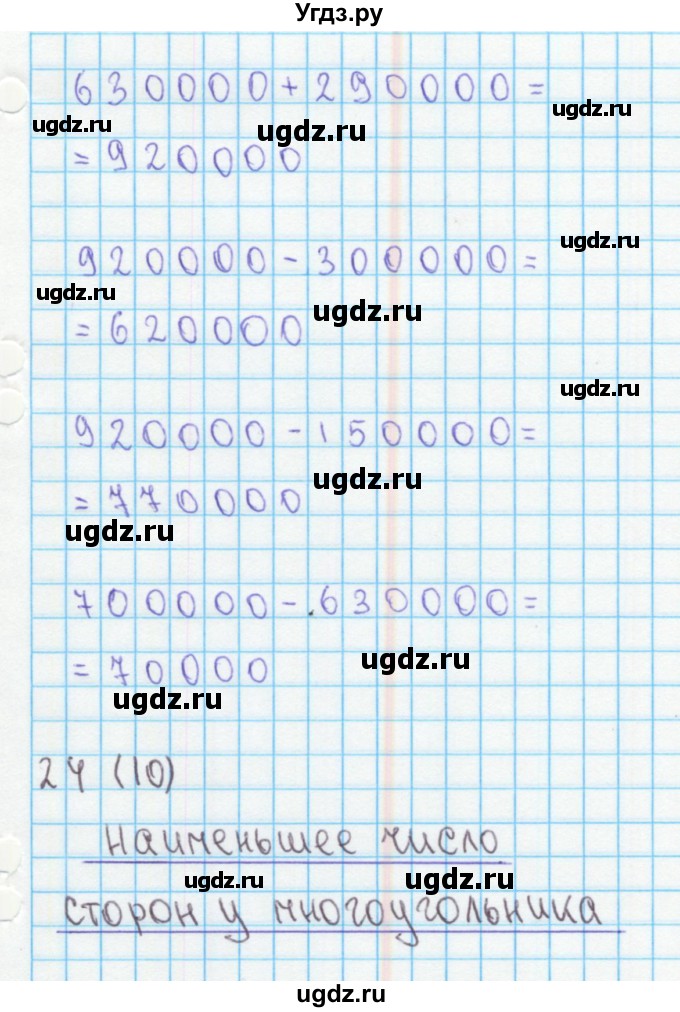 Угдз.ру
630000+290000=
ugdz.ru
ugdz.ru
ugdz.ru
=920000
920000-300000=
ugdz.ru
ugdz.ru
ugdz.ru
=620000
ugdz.ru
920000-150000=
ugdz.ru
=770000
ugdz.ru
700000-.630000=
ugdz.ru
=70000
ugdz.ru
24 (10)
Наименьшее число
ugdz.ru
ugdz.ru
сторон у многоугольника
ugdz.ru